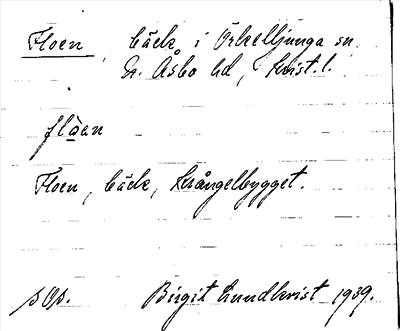 Floen, bäck i Örkelljunga sn.
N. Åsbo hd, Krist. l.
flàen
Floen, bäck, Krångelbygget.
s Os.
Birgit Lundkvist 1939.